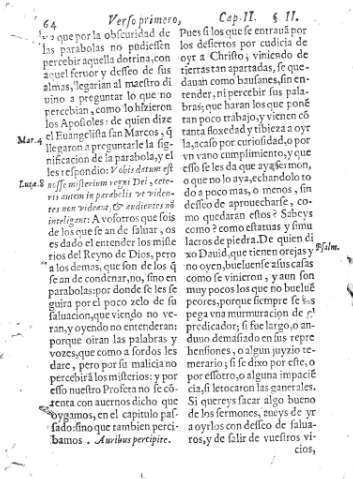 64 Verso primero, Cap. II. § II.
vo que por la obscuridad de
las parabolas no pudiessen
percebir aquella dotrina, con
aquel feruor y desseo de sus
almas, llegarian al maestro di
uino a preguntar lo que no
percebian, como lo hizieron
los Apostoles: de quien dize
Mar. 4
el Euangelista san Marcos, q̃
llegaron a preguntarle la sig-
nificacion de la parabola, y el
les respondio: Vobis datum est
Luc. 8
nosse misterium regni Dei, cete-
ris autem in parabolis vt viden-
tes non videant, & audientes nõ
inteligant: A vosotros que sois
de los que se an de saluar, os
es dado el entender los miste
rios del Reyno de Dios, pero
a los demas, que son de los q̃
se an de condenar, no, sino en
parabolas: por donde se les se
guira por el poco zelo de su
saluacion, que viendo no ve-
ran, y oyendo no entenderan:
porque oiran las palabras y
vozes, que como a sordos les
dare, pero por su malicia no
percebirã los misterios: y por
esso nuestro Profeta no se cõ-
tenta con auernos dicho que
oygamos, en el capitulo pas-
sado: sino que tambien perci-
bamos. Auribus percipite.
Pues si los que se entrauã por
los desiertos por cudicia de
oyr a Christo, viniendo de
tierras tan apartadas, se que-
dauan como bausanes, sin en-
tender, ni percebir sus pala-
bras; que haran los que ponẽ
tan poco trabajo, y vienen cõ
tanta floxedad y tibieza a oyr
la, acaso por curiosidad, o por
vn vano cumplimiento, y que
esso se les da que ayasermon,
o que no lo aya, echandolo to
do a poco mas, o menos, sin
desseo de aprouecharse, co-
mo quedaran estos? Sabeys
como? como estatuas y simu
lacros de piedra. De quien di
xo Dauid, que tienen orejas y
Psalm.
no oyen, bueluense a sus casas
como se vinieron, y aun son
muy pocos los que no bueluẽ
peores, porque siempre se les
pega vna murmuracion de el
predicador; si fue largo, o an-
duuo demasiado en sus repre
hensiones, o algun juyzio te-
merario; si se dixo por este, o
por essotro, o alguna impaciẽ
cia, si le tocaron las generales.
Si quereys sacar algo bueno
de los sermones, aueys de yr
a oyrlos con desseo de salua-
ros, y de salir de vuestros vi-
cios,